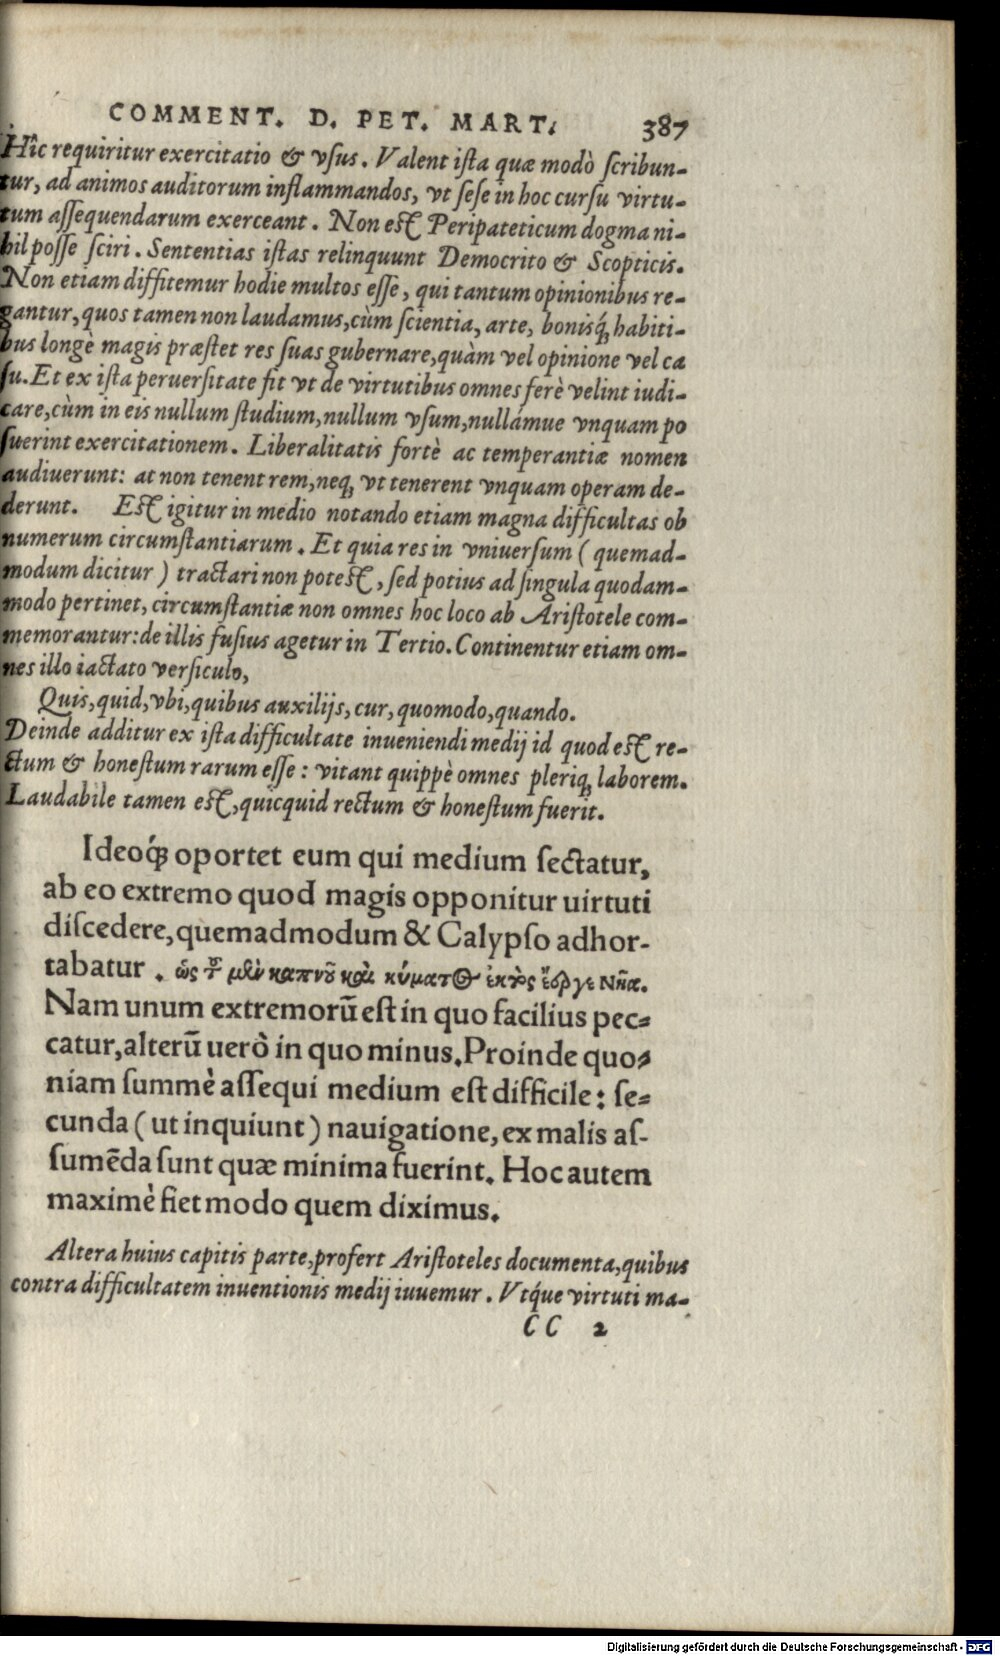 COMMENT. D. PET. MART. 387
Hîc requiritur exercitatio & vſus. Valent iſta quæ modò ſcribun-
tur, ad animos auditorum inflammandos, vt ſeſe in hoc curſu virtu-
tum aſſequendarum exerceant. Non eſt Peripateticum dogma ni-
hil poſſe ſciri. Sententias iſtas relinquunt Democrito & Scopticis.
Non etiam diffitemur hodie multos eſſe, qui tantum opinionibus re-
gantur, quos tamen non laudamus, cùm ſcientia, arte, bonisq́; habiti-
bus longè magis præſtet res ſuas gubernare, quàm vel opinione vel ca
ſu. Et ex iſta peruerſitate fit vt de virtutibus omnes ferè velint iudi-
care, cùm in eis nullum ſtudium, nullum vſum, nullámue vnquam po
ſuerint exercitationem. Liberalitatis fortè ac temperantiæ nomen
audiuerunt: at non tenent rem, neq; vt tenerent vnquam operam de-
derunt. Eſt igitur in medio notando etiam magna difficultas ob
numerum circumſtantiarum. Et quia res in vniuerſum ( quemad-
modum dicitur ) tractari non poteſt, ſed potius ad ſingula quodam-
modo pertinet, circumſtantiæ non omnes hoc loco ab Ariſtotele com-
memorantur: de illis fuſius agetur in Tertio. Continentur etiam om-
nes illo iactato verſiculo,
Quis, quid, vbi, quibus auxilijs, cur, quomodo, quando.
Deinde additur ex iſta difficultate inueniendi medij id quod eſt re-
ctum & honeſtum rarum eſſe: vitant quippè omnes pleriq; laborem.
Laudabile tamen eſt, quicquid rectum & honeſtum fuerit.
Ideoq́; oportet eum qui medium ſectatur,
ab eo extremo quod magis opponitur uirtuti
diſcedere, quemadmodum & Calypſo adhor-
tabatur. ὡς τ μὲν καπνοῦ καὶ κύματος ἐκτὸς ἔεργε νῆα.
Nam unum extremorū eſt in quo facilius pec-
catur, alterū uerò in quo minus. Proinde quo-
niam ſummè aſſequi medium eſt difficile: ſe-
cunda ( ut inquiunt ) nauigatione, ex malis aſ-
ſumēda ſunt quæ minima fuerint. Hoc autem
maximè fiet modo quem diximus.
Altera huius capitis parte, profert Ariſtoteles documenta, quibus
contra difficultatem inuentionis medij iuuemur. Vtq́ue virtuti ma-
CC 2
Digitalisierung gefördert durch die Deutsche Forschungsgemeinschaft - DFG